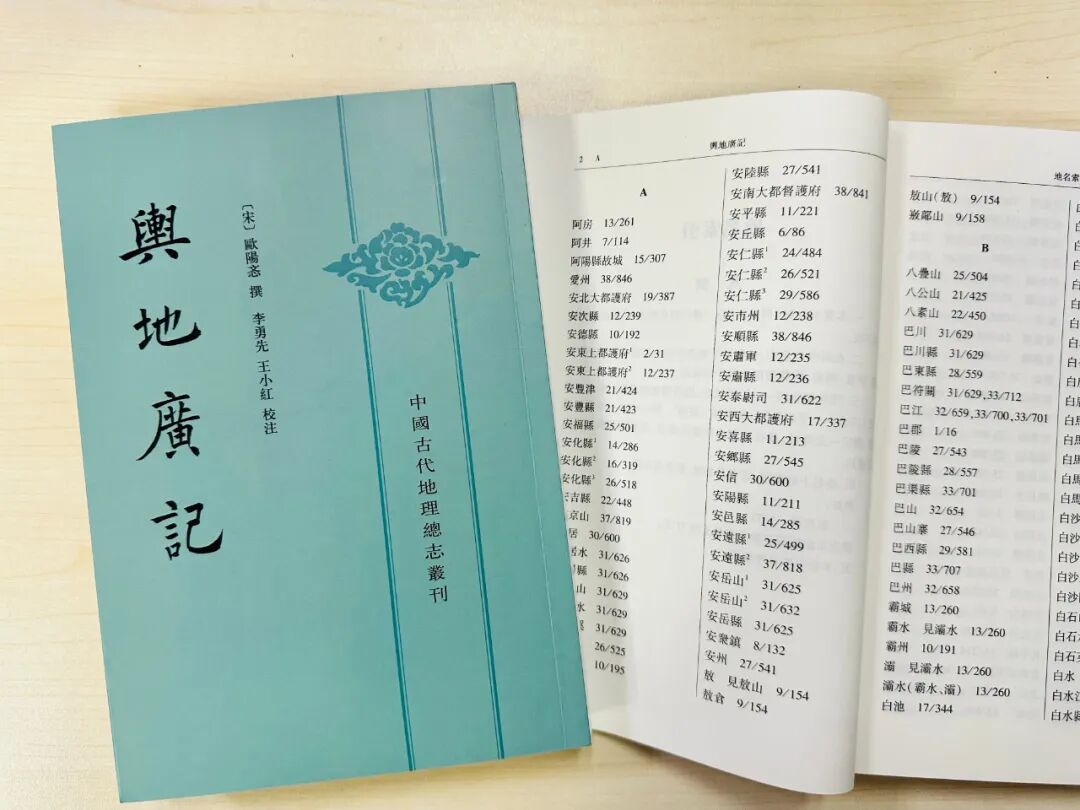 輿地廣記
〔宋〕歐陽忞 撰 李勇先 王小紅 校注
中國古代地理總志叢刊
2 A
輿地廣記
A
阿房 13/261
阿井 7/114
阿陽縣故城 15/307
愛州 38/846
安北大都護府 19/387
安次縣 12/239
安德縣 10/192
安東上都護府¹ 2/31
安東上都護府² 12/237
安豐津 21/424
安豐縣 21/423
安福縣 25/501
安化縣¹ 14/286
安化縣² 16/319
安化縣³ 26/518
安吉縣 22/448
京山 37/819
居 30/600
居水 31/626
縣 31/626
山 31/629
水 31/629
31/629
26/525
10/195
安陸縣 27/541
安南大都督護府 38/841
安平縣 11/221
安丘縣 6/86
安仁縣¹ 24/484
安仁縣² 26/521
安仁縣³ 29/586
安市州 12/238
安順縣 38/846
安肅軍 12/235
安肅縣 12/236
安泰尉司 31/622
安西大都護府 17/337
安喜縣 11/213
安鄉縣 27/545
安信 30/600
安陽縣 11/211
安邑縣 14/285
安遠縣¹ 25/499
安遠縣² 37/818
安岳山¹ 31/625
安岳山² 31/632
安岳縣 31/625
安衆鎮 8/132
安州 27/541
敖 見敖山 9/154
敖倉 9/154
地名索
敖山(敖) 9/154
嶅鄗山 9/158
B
八疊山 25/504
八公山 21/425
八素山 22/450
巴川 31/629
巴川縣 31/629
巴東縣 28/559
巴符關 31/629,33/712
巴江 32/659,33/700,33/701
巴郡 1/16
巴陵 27/543
巴陵縣 28/557
巴渠縣 33/701
巴山 32/654
巴山寨 27/546
巴西縣 29/581
巴縣 33/707
巴州 32/658
霸城 13/260
霸水 見灞水 13/260
霸州 10/191
灞 見灞水 13/260
灞水(霸水、灞) 13/260
白池 17/344
白
白
白
白馬
白馬
白馬
白沙
白沙
白沙
白石
白石
白水
白水江
白水縣